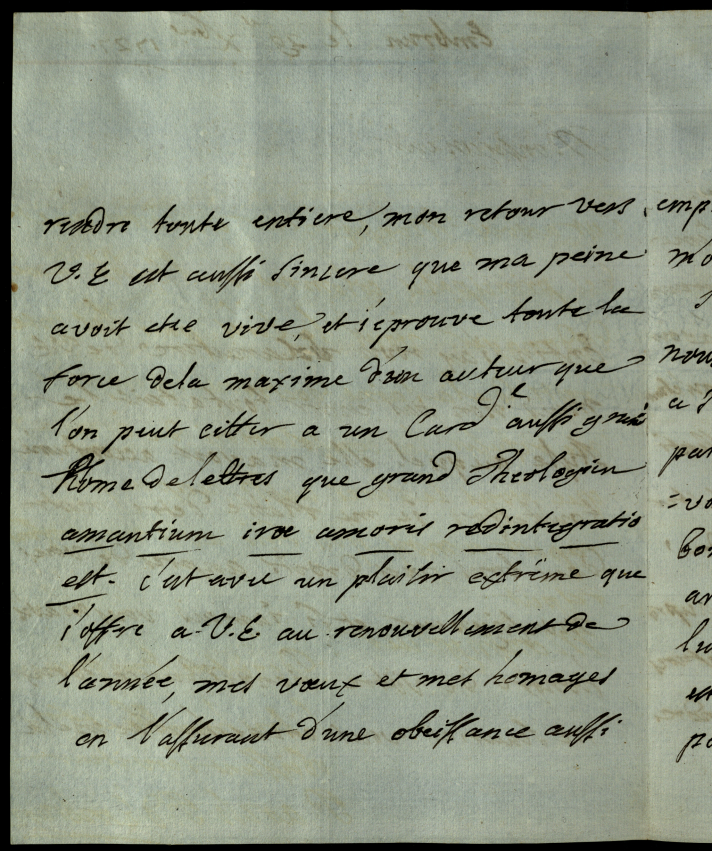 rendre toute entiere, mon retour vers
V. E est aussi sincere que ma peine
avoit eté vive, et i'éprouve toute la
force dela maxime d'un auteur que
l'on peut citter a un Card.e aussi grand
home delettres que grand Theologien
amantium iræ amoris redintegratio
est. c'est avec un plaisir extrême que
i'offre a V. E au renouvellement de
l'année, mes vœux et mes homages
en l'assurant d'une obeissance aussi